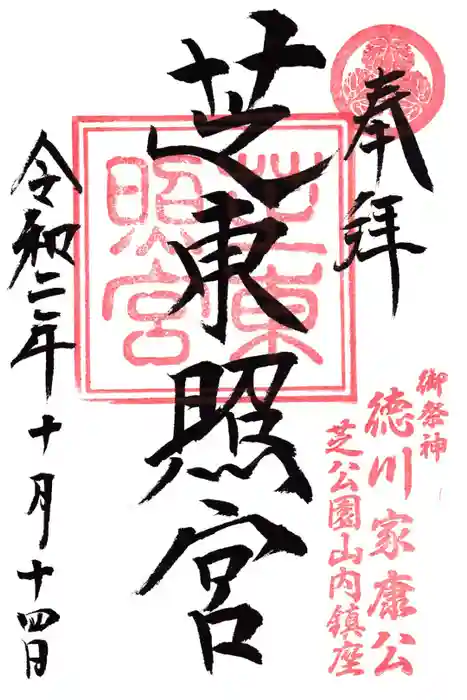 奉拝
御祭神
徳川家康公
芝公園山内鎮座
芝東照宮
芝東
照宮
令和二年十月十四日